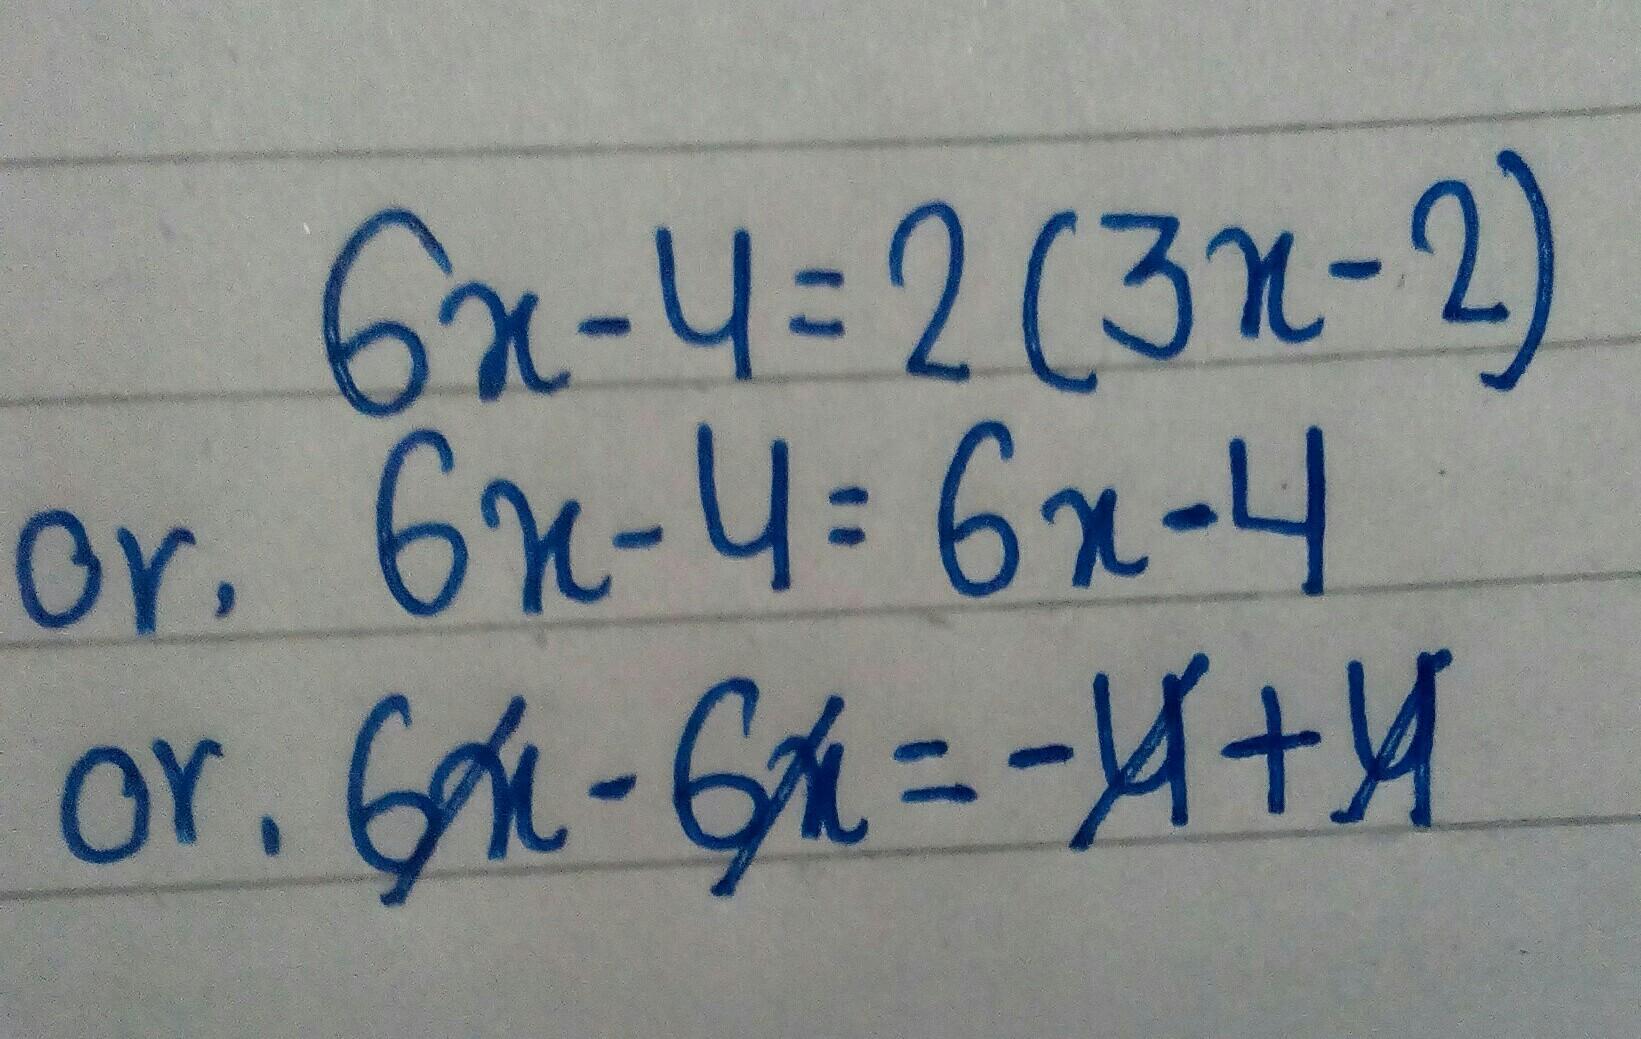 6x-4=2(3x-2)
or, 6x-4=6x-4
or, 6x-6x=-4+4